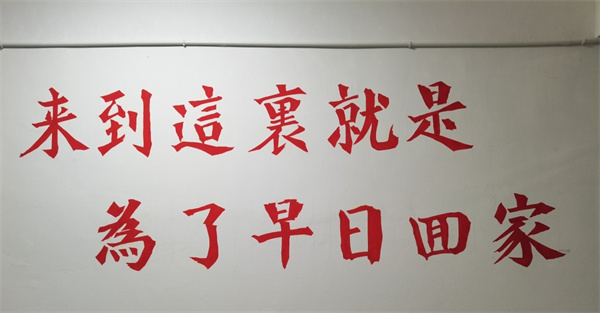 来到這裏就是
為了早日囬家